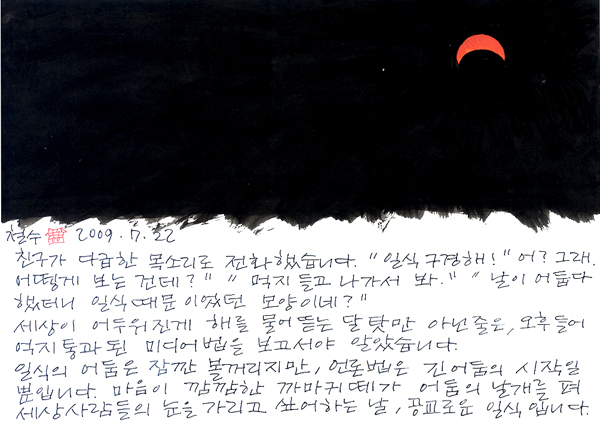 철수 2009.7.22
친구가 다급한 목소리로 전화했습니다. "일식 구경해!" "어? 그래.
어떻게 보는 건데?" "먹지 들고 나가서 봐." "날이 어둡다
했더니 일식 때문이었던 모양이네?"
세상이 어두워진게 해를 물어 뜯는 달 탓만 아닌줄은, 오후 들어
억지 통과 된 미디어법을 보고서야 알았습니다.
일식의 어둠은 잠깐 볼꺼리지만, 언론법은 긴 어둠의 시작일
뿐입니다. 마음이 깜깜한 까마귀떼가 어둠의 날개를 펴
세상사람들의 눈을 가리고 싶어하는 날, 공교로운 일식입니다.